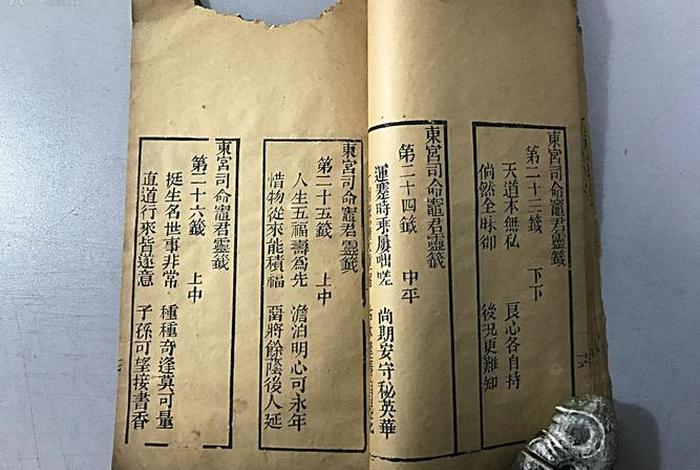 東宮司命竈君靈籤
第二十三籤 下下
天道本無私 良心各自持
倘然全昧卻 後況更難知
東宮司命竈君靈籤
第二十四籤 中平
運蹇時乖屢咄嗟 尚期安守秘英華
東宮司命竈君靈籤
第二十五籤 上中
人生五福壽為先 澹泊明心可永年
惜物從來能積福 畱將餘蔭後人延
東宮司命竈君靈籤
第二十六籤 上中
挺生名世事非常 種種奇逢莫可量
直道行來皆遂意 子孫可望接書香